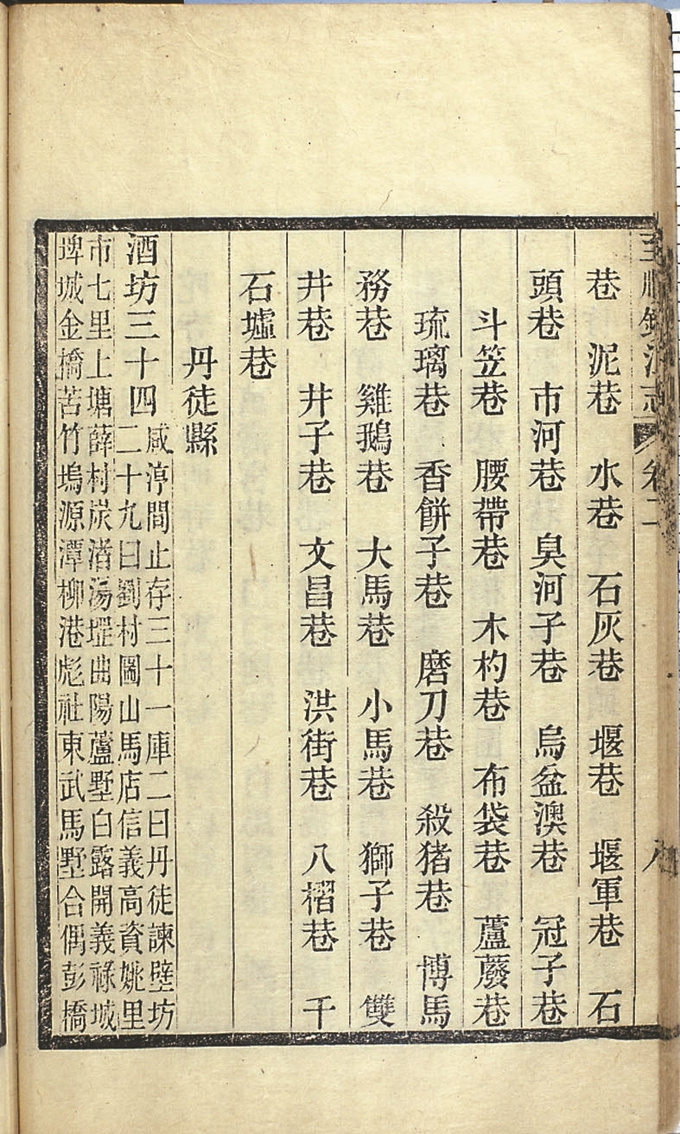 至順鎮江志 卷二 八
巷 泥巷 水巷 石灰巷 堰巷 堰軍巷 石
頭巷 市河巷 臭河子巷 烏盆澳巷 冠子巷
斗笠巷 腰帶巷 木杓巷 布袋巷 蘆蕟巷
琉璃巷 香餅子巷 磨刀巷 殺猪巷 博馬
務巷 雞鵝巷 大馬巷 小馬巷 獅子巷 雙
井巷 井子巷 文昌巷 洪街巷 八槢巷 千
石墟巷
丹徒縣
酒坊三十四 咸淳間止存三十一庫二曰丹徒諫壁坊
二十九曰劉村圖山馬店信義高資姚里
市七里上塘薛村炭渚湯墟曲陽蘆墅白露開義祿城
埤城金橋苦竹塢源潭柳港彪社東武馬墅合偶彭橋